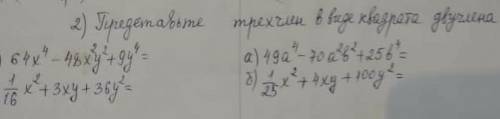 2) Представьте трехчлен в виде квадрата двучлена
) 64x⁴ - 48x²y² + 9y⁴ =
1/16 x² + 3xy + 36y² =
а) 49a⁴ - 70a²b² + 25b⁴ =
б) 1/25 x² + 4xy + 100y² =